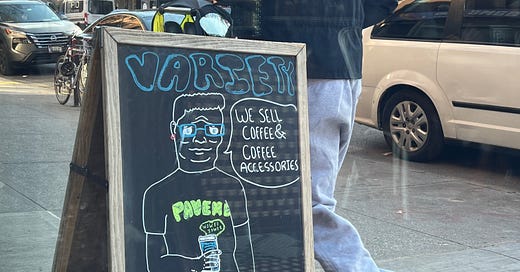 VARIETY
WE SELL
COFFEE &
COFFEE
ACCESSORIES
PAVEMENT